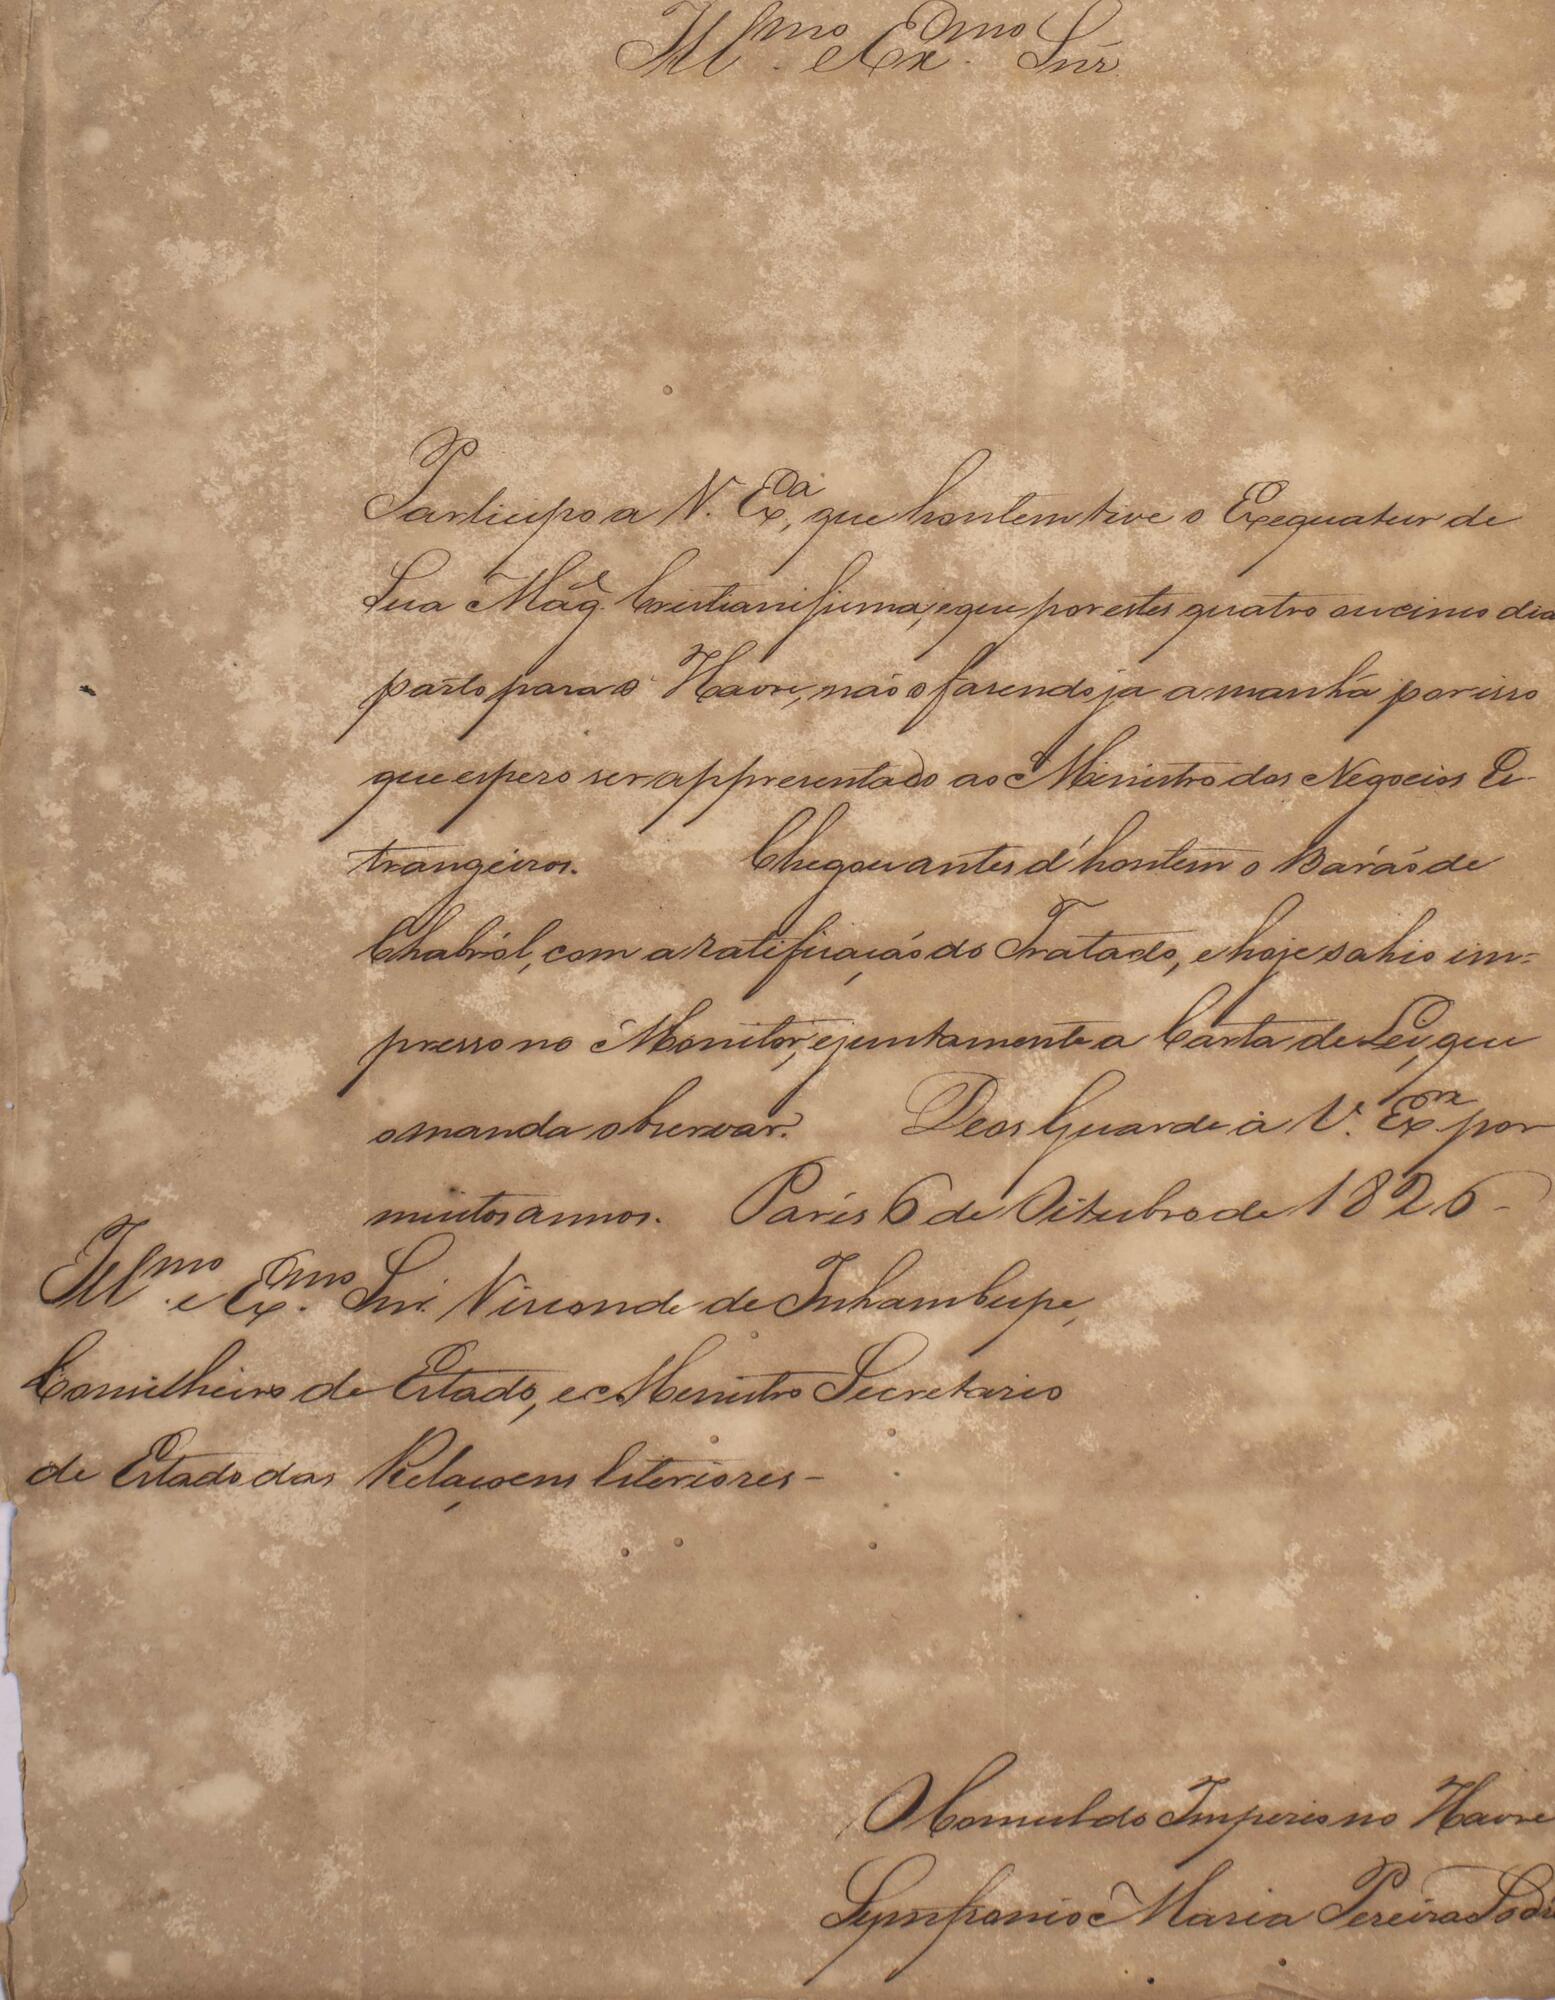 Ill.mo e Ex.mo Snr.
Participo a V. Ex.a, que hontem tive o Exequatur de
Sua Mag.e Cristianissima, e que por estes quatro ou cinco dia
parto para o Havre, não o fasendo ja amanhã por isso
que espero ser appresentado ao Ministro dos Negocios Es-
trangeiros. Chegou antes d'hontem o Barão de
Chabról, com a ratificação do Tratado, e hoje sahio im=
presso no Monitor, e juntamente a Carta de Lei, que
o manda observar. Deos Guarde a V. Ex.a por
muitos annos. Paris 6 de Oitubro de 1826 -
Ill.mo e Ex.mo Snr. Visconde de Inhambupe,
Conselheiro de Estado, e Ministro Secretario
de Estado das Relaçoens Exteriores -
O Consul do Imperio no Havre
Symfronio Maria Pereira Sodré